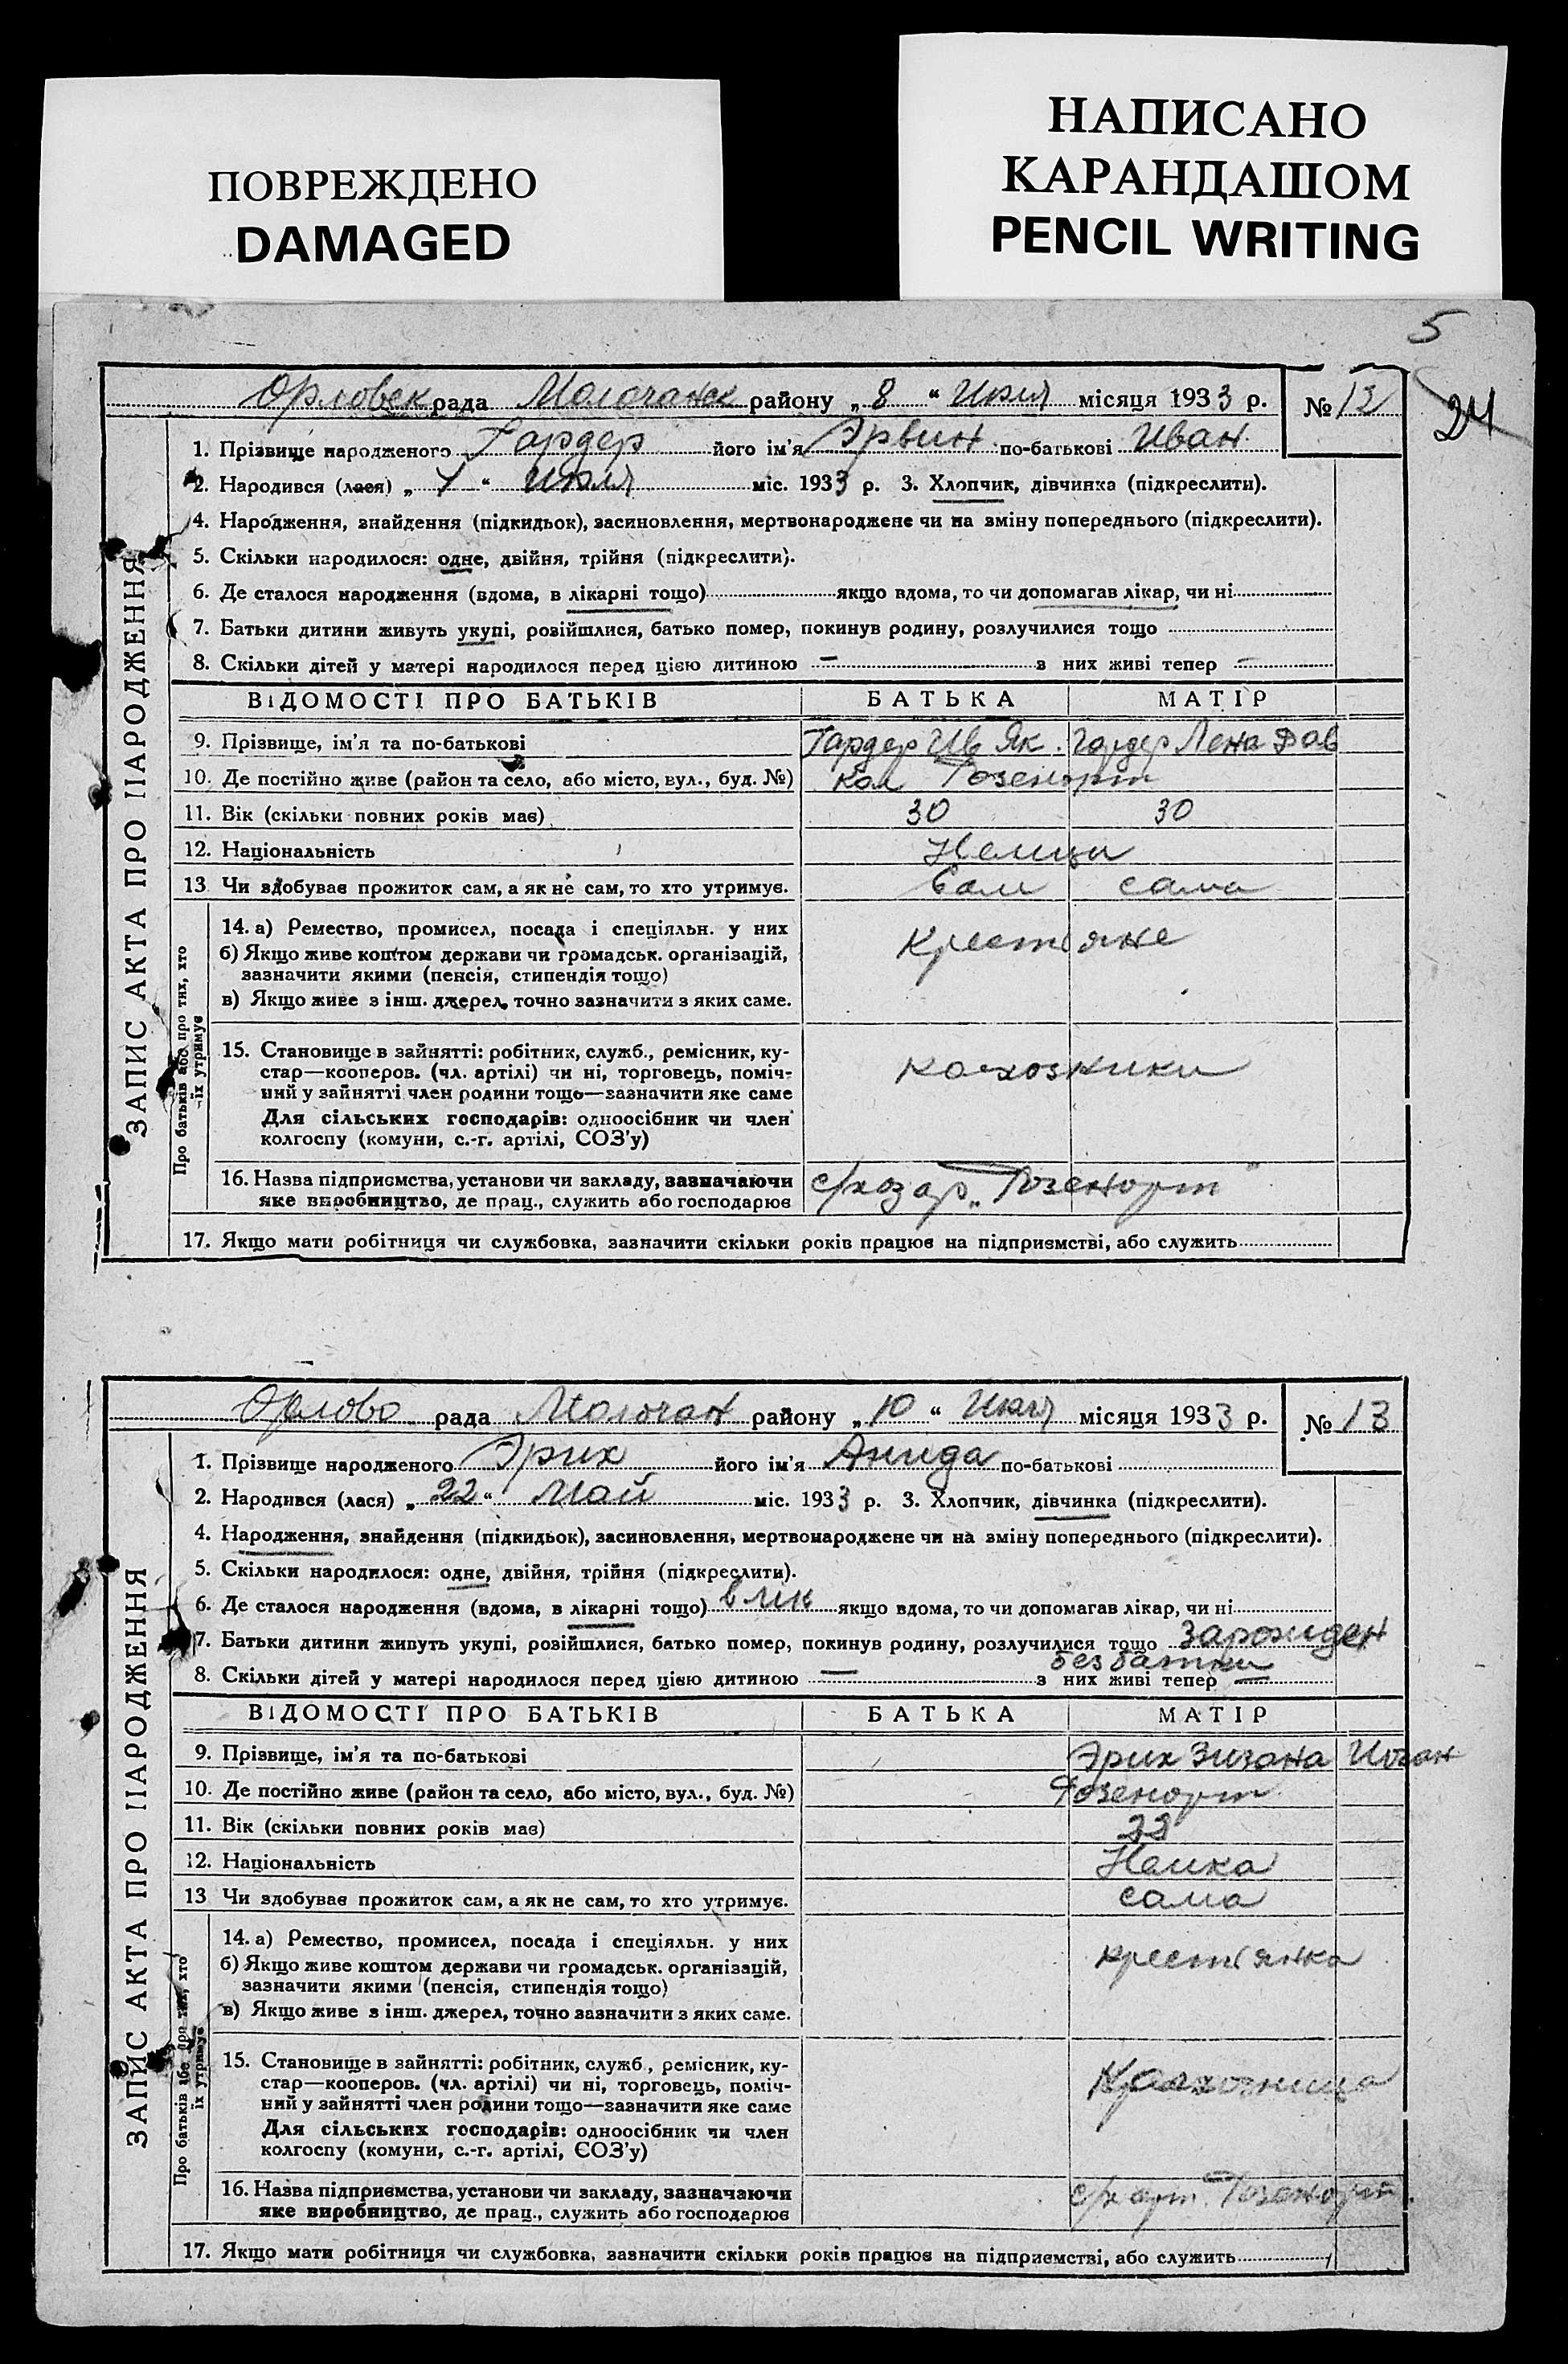 ПОВРЕЖДЕНО
DAMAGED
НАПИСАНО
КАРАНДАШОМ
PENCIL WRITING
5
24
Орловск рада Молочанск району „ 8 “ Июля місяця 1933 р. № 12
1. Прізвище народженого Гардер його ім'я Эрвин по-батькові Иван
2. Народився (лася) „ 1 “ Июля міс. 1933 р. 3. Хлопчик, дівчинка (підкреслити).
4. Народження, знайдення (підкидьок), засиновлення, мертвонароджене чи на зміну попереднього (підкреслити).
5. Скільки народилося: одне, двійня, трійня (підкреслити).
6. Де сталося народження (вдома, в лікарні тощо) якщо вдома, то чи допомагав лікар, чи ні
7. Батьки дитини живуть укупі, розвійшлися, батько помер, покинув родину, розлучилися тощо
8. Скільки дітей у матері народилося перед цією дитиною — з них живі тепер —
ВІДОМОСТІ ПРО БАТЬКІВ БАТЬКА МАТІР
9. Прізвище, ім'я та по-батькові Гардер Ив Як. Гардер Лена Дав
10. Де постійно живе (район та село, або місто, вул., буд. №) Кол Розенорт
11. Вік (скільки повних років має) 30 30
12. Національність Немцы
13 Чи здобуває прожиток сам, а як не сам, то хто утримує. Сам сама
14. а) Ремество, промисел, посада і спеціяльн. у них Крестяне
б) Якщо живе коштом держави чи громадськ. організацій,
зазначити якими (пенсія, стипендія тощо)
в) Якщо живе з інш. джерел, точно зазначити з яких саме.
15. Становище в зайнятті: робітник, служб., ремісник, ку-
стар—кооперов. (чл. артілі) чи ні, торговець, поміч- колхозники
ний у зайнятті член родини тощо—зазначити яке саме
Для сільських господарів: одноосібник чи член
колгоспу (комуни, с.-г. артілі, СОЗ'у)
16. Назва підприємства, установи чи закладу, зазначаючи с/хоз ар. „Розенорт
яке виробництво, де прац., служить або господарює
17. Якщо мати робітниця чи службовка, зазначити скільки років працює на підприємстві, або служить
ЗАПИС АКТА ПРО НАРОДЖЕННЯ
Про батьків або про тих, хто
їх утримує
Орлово рада Молочан району „ 10 “ Июля місяця 1933 р. № 13
1. Прізвище народженого Эрих його ім'я Анида по-батькові
2. Народився (лася) „ 22 “ Май міс. 1933 р. 3. Хлопчик, дівчинка (підкреслити).
4. Народження, знайдення (підкидьок), засиновлення, мертвонароджене чи на зміну попереднього (підкреслити).
5. Скільки народилося: одне, двійня, трійня (підкреслити).
6. Де сталося народження (вдома, в лікарні тощо) в лік якщо вдома, то чи допомагав лікар, чи ні
7. Батьки дитини живуть укупі, розвійшлися, батько помер, покинув родину, розлучилися тощо зарожден
без батки
8. Скільки дітей у матері народилося перед цією дитиною — з них живі тепер —
ВІДОМОСТІ ПРО БАТЬКІВ БАТЬКА МАТІР
9. Прізвище, ім'я та по-батькові Эрих Зизана Иоган
10. Де постійно живе (район та село, або місто, вул., буд. №) Розенорт
11. Вік (скільки повних років має) 22
12. Національність Немка
13 Чи здобуває прожиток сам, а як не сам, то хто утримує. сама
14. а) Ремество, промисел, посада і спеціяльн. у них крестянка
б) Якщо живе коштом держави чи громадськ. організацій,
зазначити якими (пенсія, стипендія тощо)
в) Якщо живе з інш. джерел, точно зазначити з яких саме.
15. Становище в зайнятті: робітник, служб., ремісник, ку-
стар—кооперов. (чл. артілі) чи ні, торговець, поміч- Колхозница
ний у зайнятті член родини тощо—зазначити яке саме
Для сільських господарів: одноосібник чи член
колгоспу (комуни, с.-г. артілі, СОЗ'у)
16. Назва підприємства, установи чи закладу, зазначаючи с/х арт. Розенорт.
яке виробництво, де прац., служить або господарює
17. Якщо мати робітниця чи службовка, зазначити скільки років працює на підприємстві, або служить
ЗАПИС АКТА ПРО НАРОДЖЕННЯ
Про батьків або про тих, хто
їх утримує